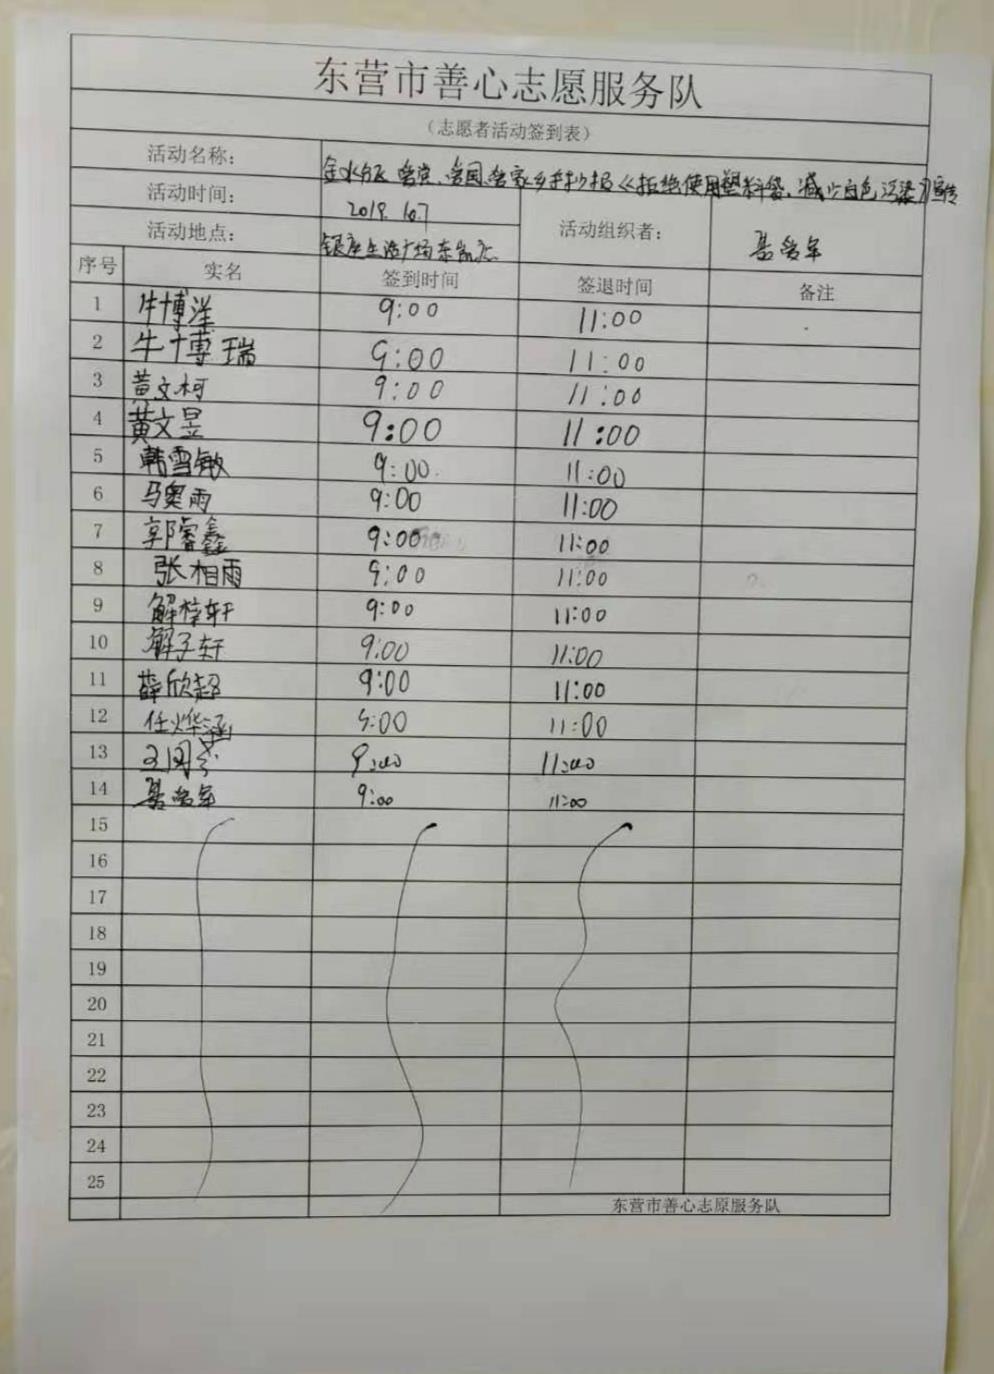 东营市善心志愿服务队
（志愿者活动签到表）
活动名称： 爱党、爱国、爱家乡手抄报《拒绝使用塑料袋，减少白色污染》宣传
活动时间： 2019.10.7 活动组织者：
活动地点： 银座生活广场东
序号 实名 签到时间 签退时间 备注
1 牛博洋 9:00 11:00
2 牛博瑞 9:00 11:00
3 黄文柯 9:00 11:00
4 黄文昱 9:00 11:00
5 韩雪敏 9:00 11:00
6 马奥雨 9:00 11:00
7 郭睿鑫 9:00 11:00
8 张相雨 9:00 11:00
9 解梓轩 9:00 11:00
10 解子轩 9:00 11:00
11 薛欣超 9:00 11:00
12 任烨涵 9:00 11:00
13 9:00 11:00
14 9:00 11:00
15
16
17
18
19
20
21
22
23
24
25
东营市善心志原服务队